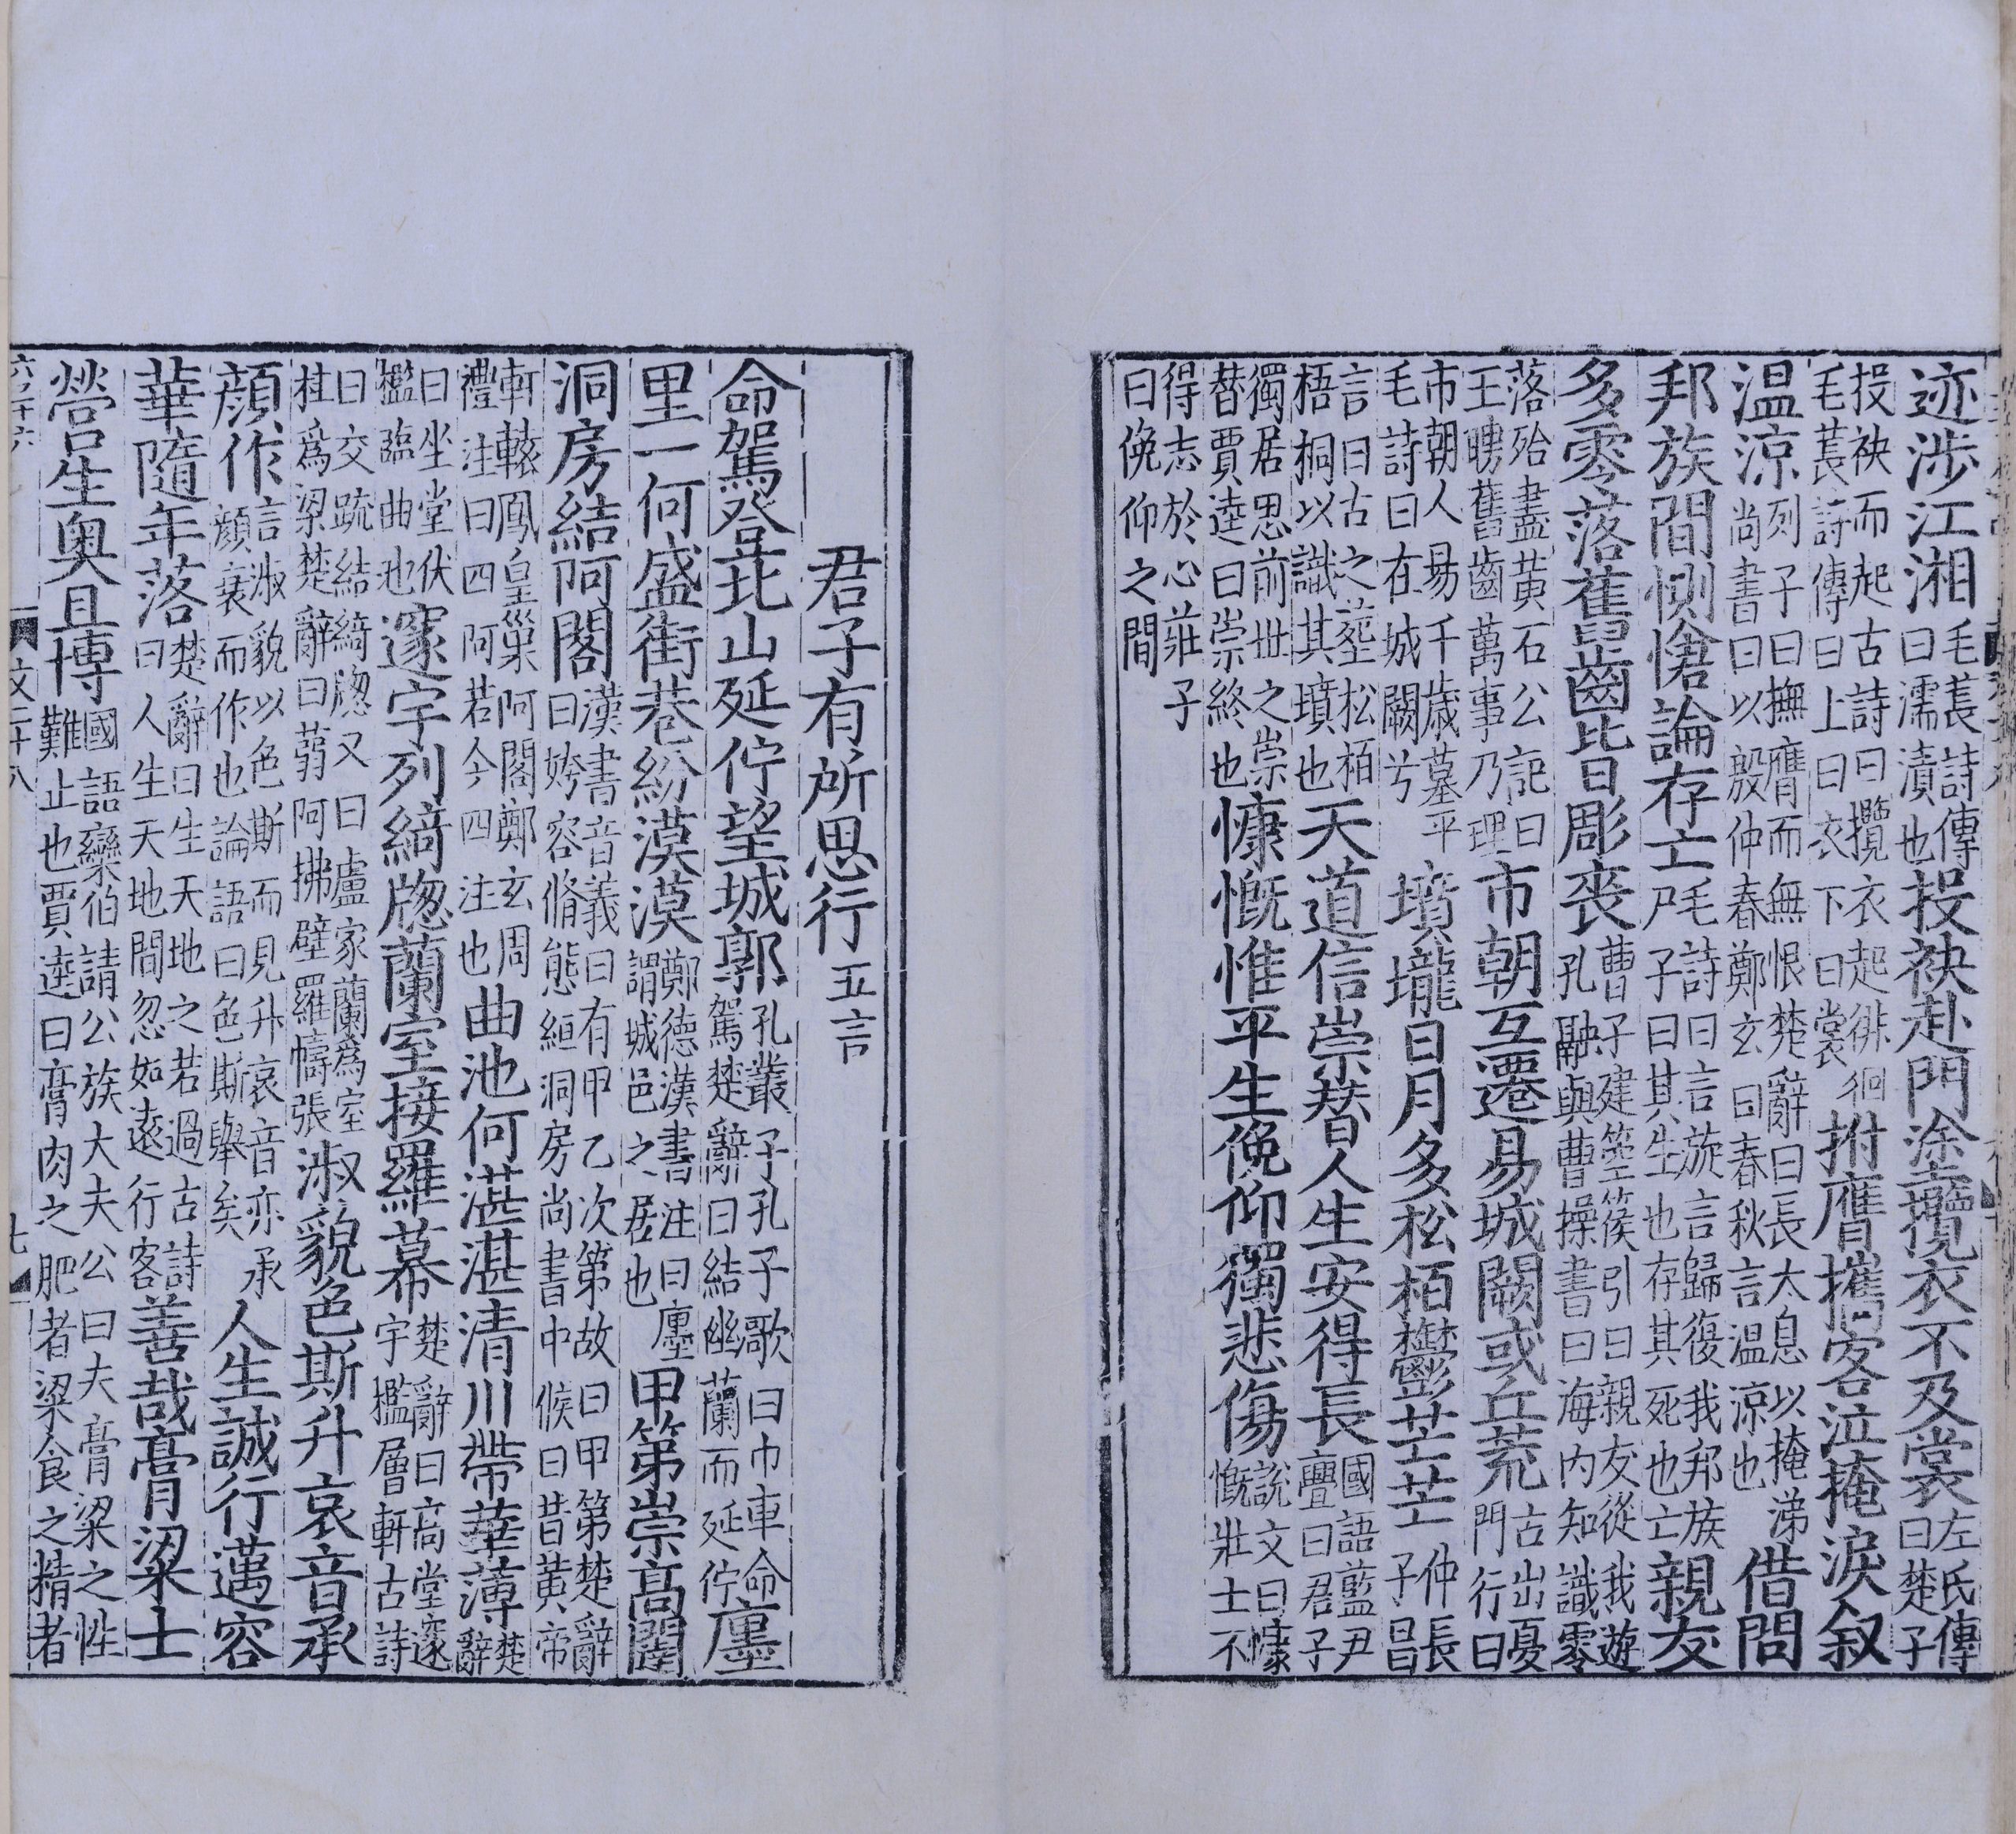 迹涉江湘毛萇詩傳曰濡漬也投袂赴門塗攬衣不及裳左氏傳曰楚子
投袂而起古詩曰攬衣起徘徊毛萇詩傳曰上曰衣下曰裳拊膺攜客泣掩淚叙
温涼列子曰撫膺而無恨楚辭曰長太息以掩涕尚書曰以殷仲春鄭玄曰春秋言温涼也借問
邦族間惻愴論存亡毛詩曰言旋言歸復我邦族尸子曰其生也存其死也亡親友
多零落舊齒皆彫喪曹子建箜篌引曰親友從我遊孔融與曹操書曰海内知識零
落殆盡黃石公記曰王聘舊齒萬事乃理市朝互遷易城闕或丘荒古出夏門行曰
市朝人易千歲墓平毛詩曰在城闕兮墳壠日月多松栢鬱芒芒仲長子昌
言曰古之葬松栢梧桐以識其墳也天道信崇替人生安得長國語藍尹亹曰君子
獨居思前世之崇替賈逵曰崇終也慷慨惟平生俛仰獨悲傷說文曰慷慨壯士不
得志於心莊子曰俛仰之間
君子有所思行五言
命駕登北山延佇望城郭孔叢子孔子歌曰巾車命駕楚辭曰結幽蘭而延佇廛
里一何盛街巷紛漠漠鄭德漢書注曰廛謂城邑之居也甲第崇高闥
洞房結阿閣漢書音義曰有甲乙次第故曰甲第楚辭曰姱容脩態絙洞房尚書中候曰昔黃帝
軒轅鳳皇巢阿閣鄭玄周禮注曰四阿若今四注也曲池何湛湛清川帶華薄楚辭
曰坐堂伏檻臨曲池邃宇列綺牕蘭室接羅幕楚辭曰高堂邃宇檻層軒古詩
曰交疏結綺牕又曰盧家蘭為室桂為梁楚辭曰蒻阿拂壁羅幬張淑貌色斯升哀音承
顏作言淑貌以色斯而見升哀音亦承顏衰而作也論語曰色斯舉矣人生誠行邁容
華隨年落楚辭曰生天地之若過古詩曰人生天地間忽如遠行客善哉膏粱士
營生奧且博國語欒伯請公族大夫公曰夫膏粱之性難止也賈逵曰膏肉之肥者粱食之精者
文二十八
七